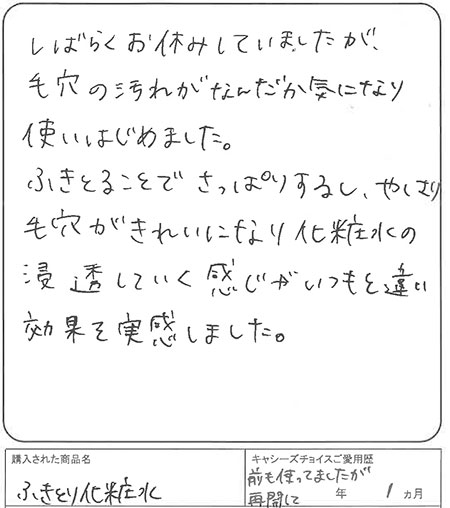 しばらくお休みしていましたが、
毛穴の汚れがなんだか気になり
使いはじめました。
ふきとることでさっぱりするし、やはり
毛穴がきれいになり化粧水の
浸透していく感じがいつもと違い
効果を実感しました。
購入された商品名
ふきとり化粧水
キャシーズチョイスご愛用歴
前も使ってましたが
再開して 年 1 ヵ月